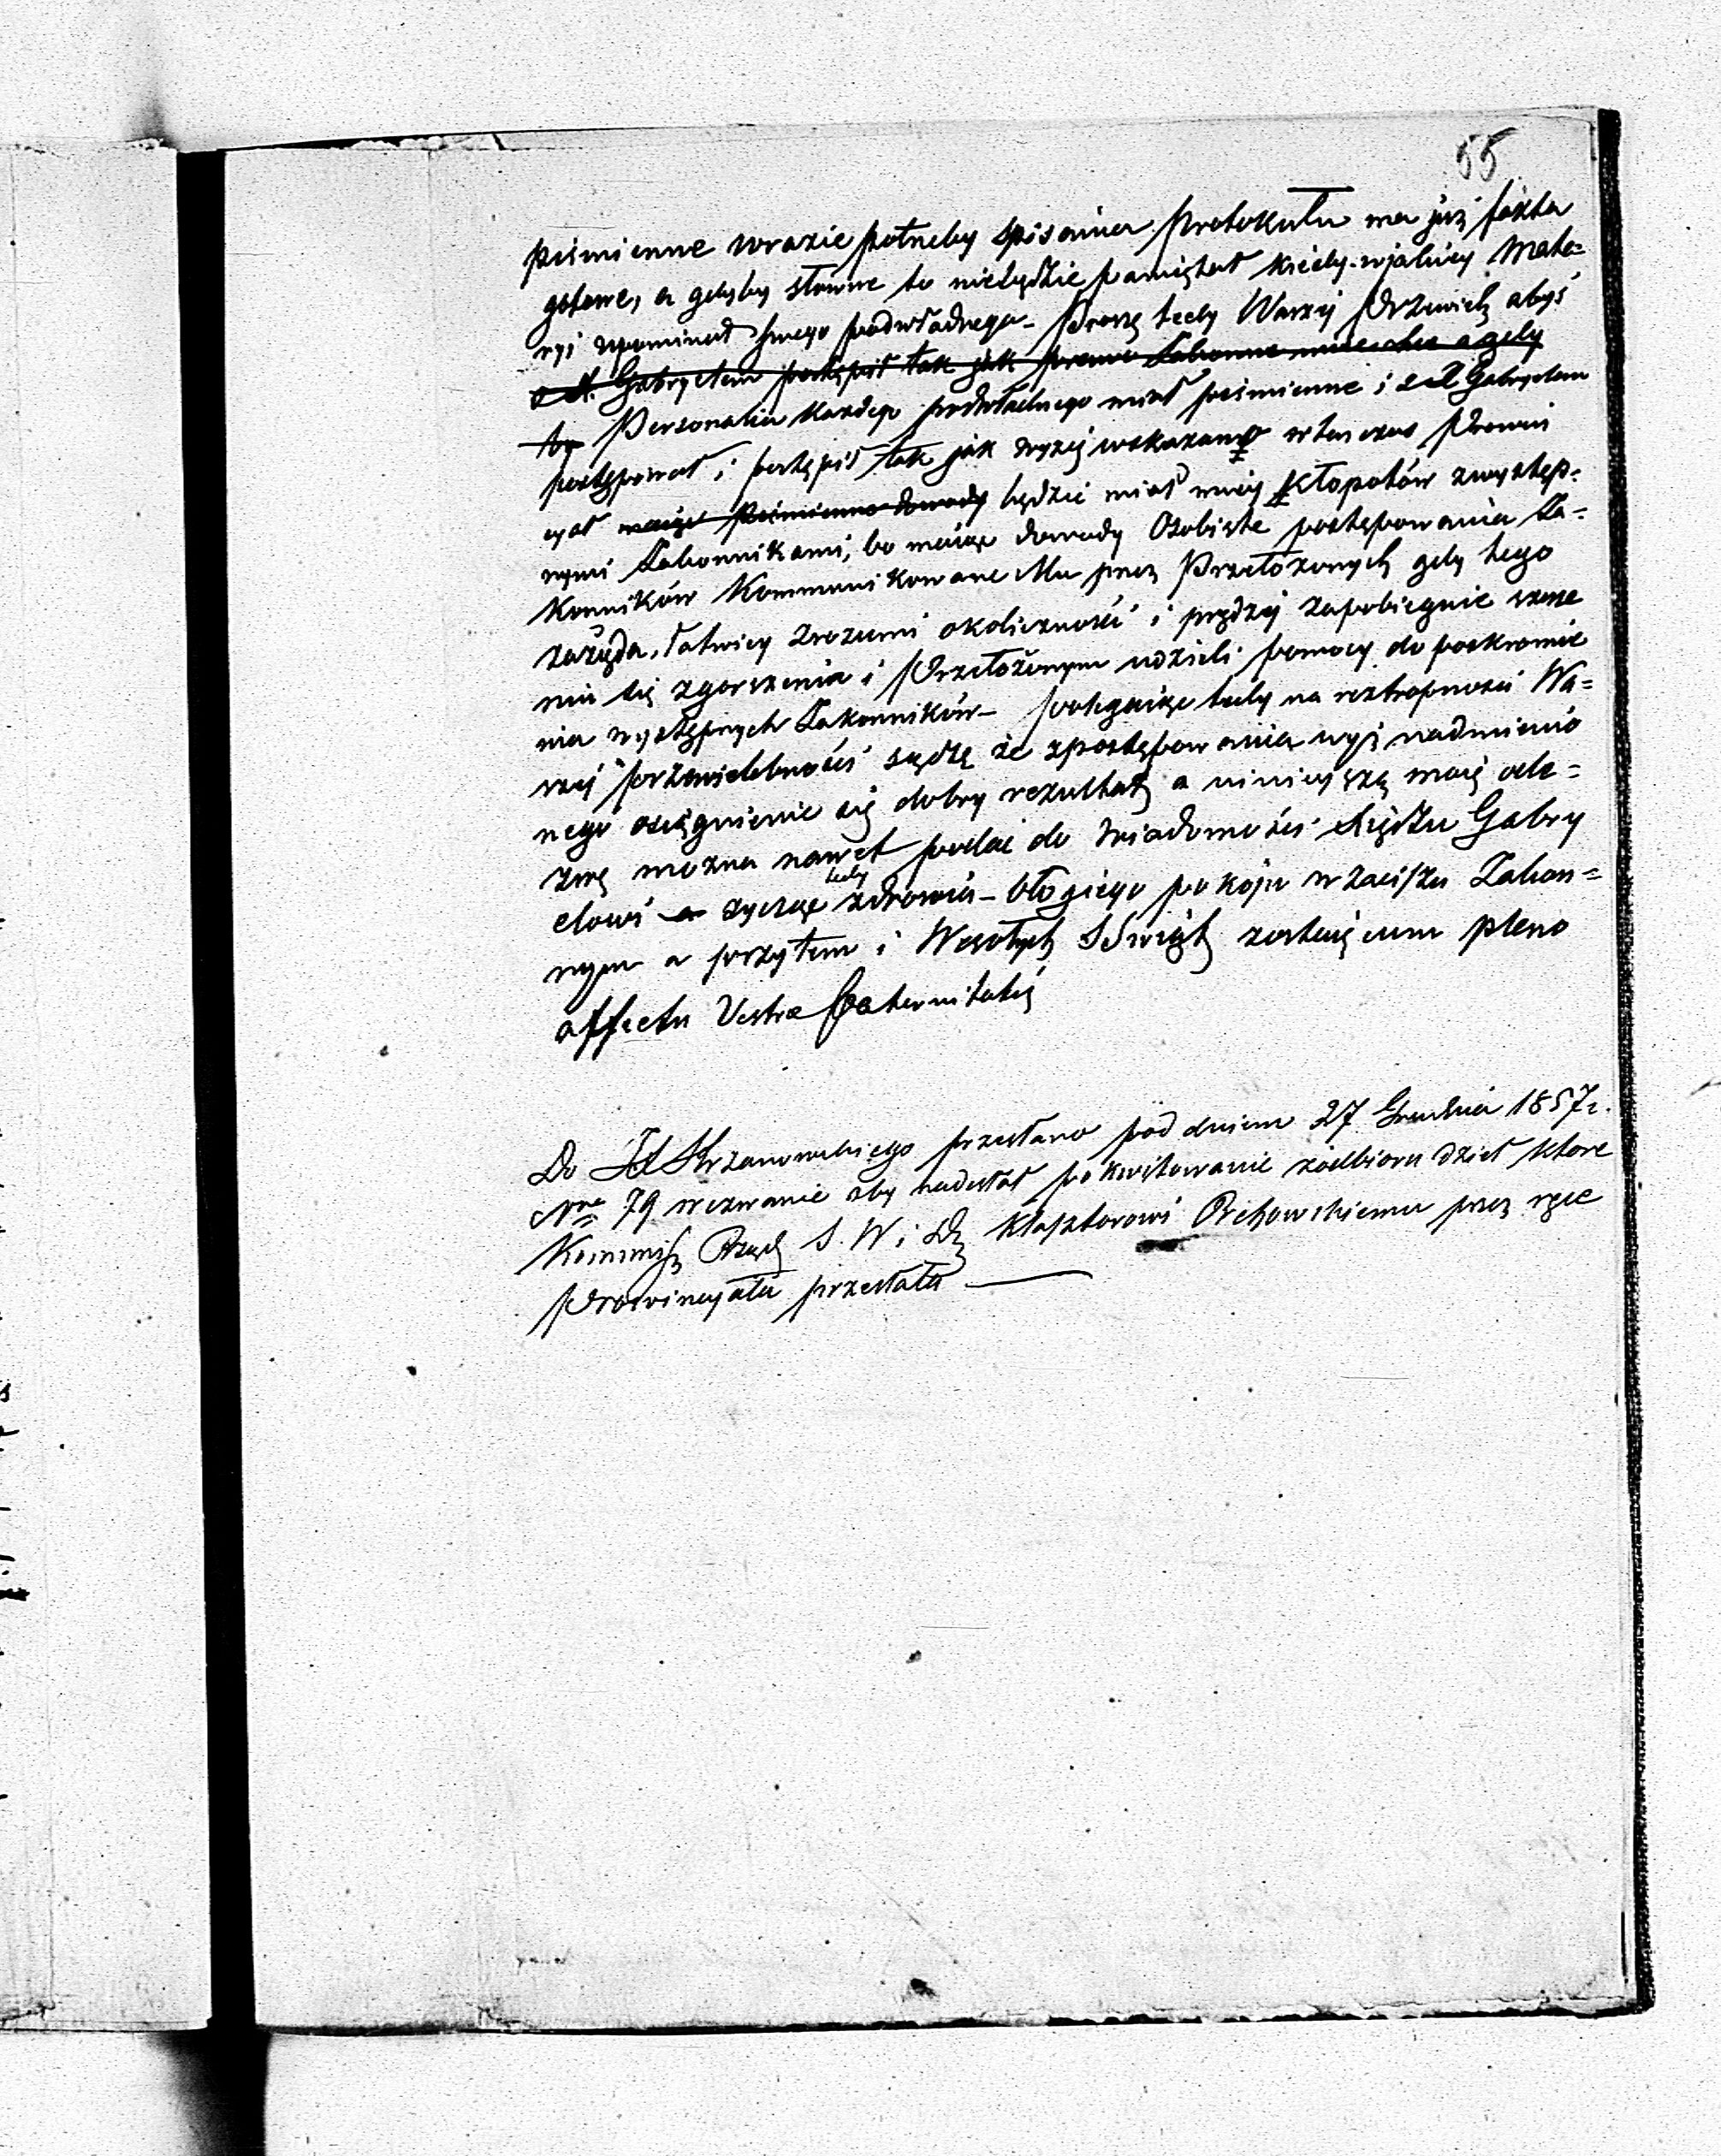 55
piśmienne wrazie potrzeby spisania Protokułu ma już fakta
gotowe, a gdyby słowne to niebędzie pamiętał kiedy i wjakiey Mate=
ryi upominał swego podwładnego – Proszę tedy Waszej Przewiel abyś
z X. Gabryelem postąpił tak jak prawo Zakonne a gdy
by Personalia każdego podwładnego miał piśmienne i z X Gabryelem
postępował i postąpił tak jak wyżej wskazano wtenczas Prowin
cyał maiąc piśmienne dowody będzie miał mniey kłopotów zwystęp=
nymi Zakonnikami, bo maiąc dowody Osobiste postępowania Za=
konników Kommunikowane Mu przez Przełożonych gdy tego
zażąda, łatwiey zrozumi okoliczności i prędzej zapobiegnie szerze
niu się zgorszenia i Przełożonym udzieli pomocy do poskromie
nia występnych Zakonników – polegaiąc tedy na roztropności Wa=
szej przewielebności sądzę że zpostępowania wyż nadmienio
nego osiągnienie się dobry rezultat a niniejszą moią ode=
zwę można nawet podać do wiadomości Księdzu Gabry
elowi a życząc tedy zdrowia – błogiego pokoju w zaciszu Zakon=
nym a przytem i Wesołych SSwiąt zostaię cum pleno
affectu Vestræ Paternitatis
Do JX Krzanowskiego przesłano pod dniem 27 Grudnia 1857 r.
Nro 79 wezwanie aby nadesłał pokwitowanie zodbioru dzieł które
Kommiss Rząd S. W i D klasztorowi Pińczowskiemu przez ręce
Prowincyała przesłała —